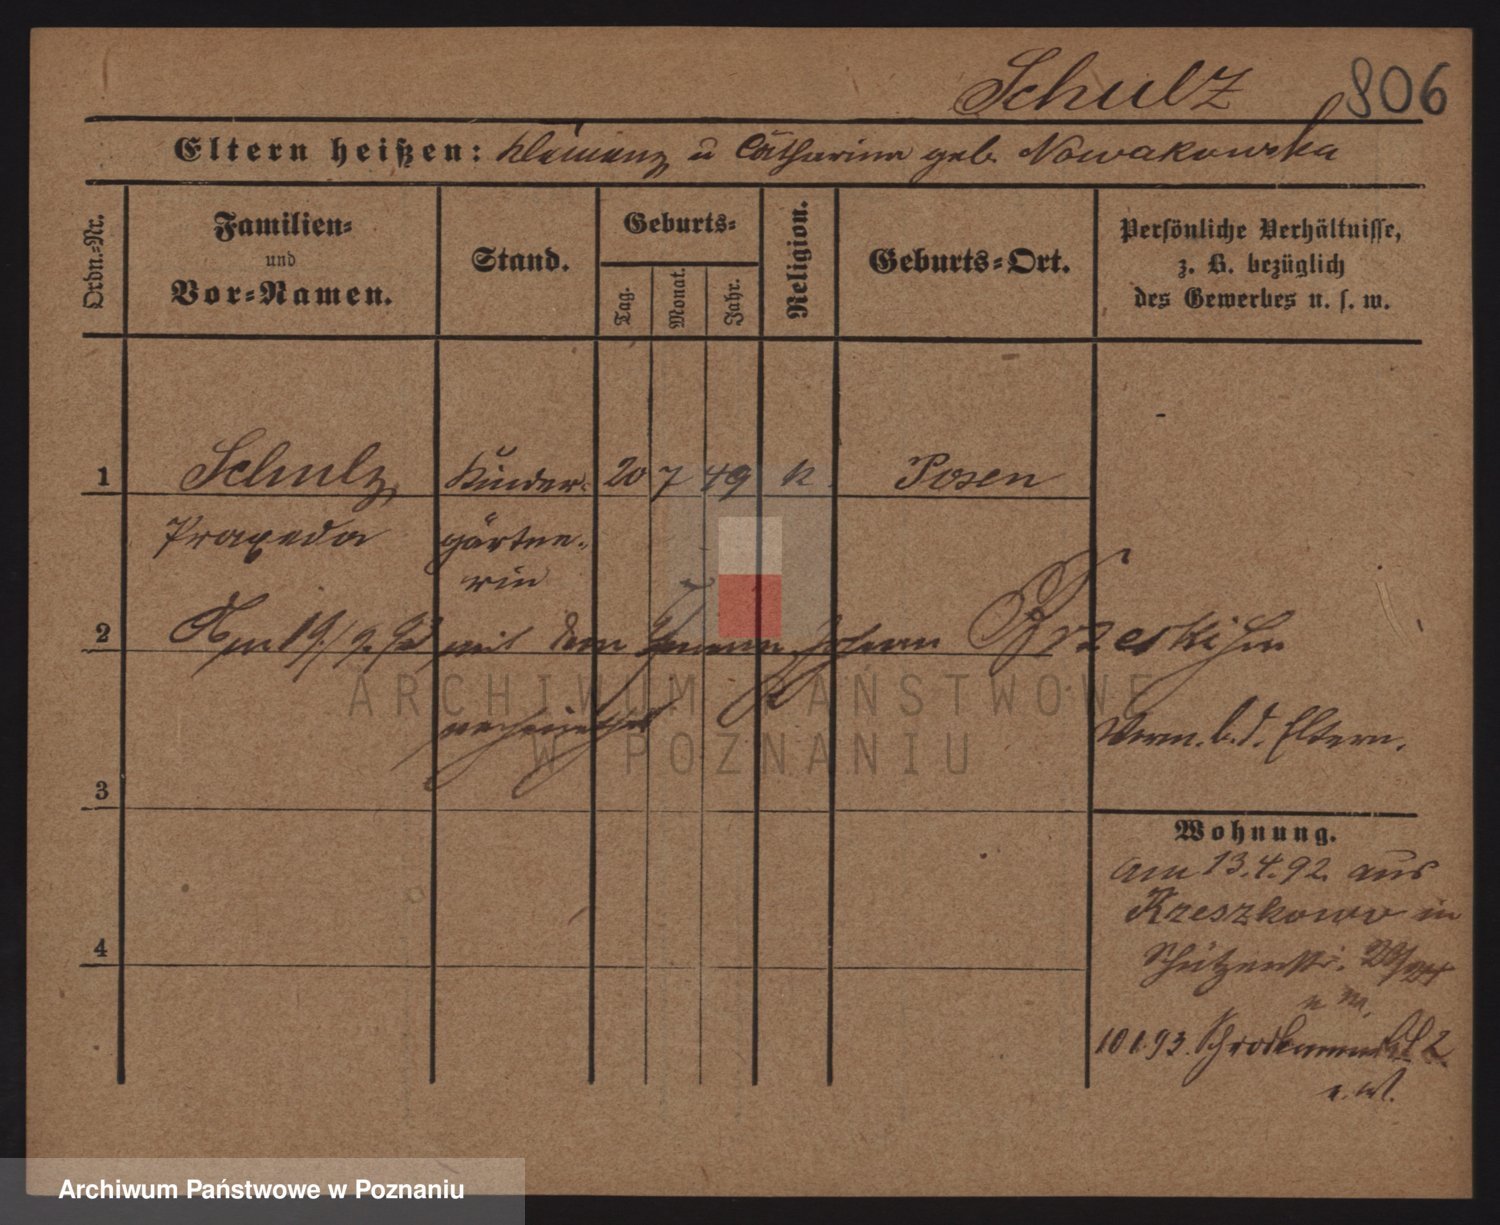 Schulz 806
Eltern heißen: Klemenz u Catharina geb. Nowakowska
Ordn.-Nr.
Familien- und Vor-Namen.
Stand.
Geburts-
Tag. Monat. Jahr.
Religion.
Geburts-Ort.
Persönliche Verhältnisse,
z. B. bezüglich
des Gewerbes u. s. w.
1 Schulz, Kinder- 20 7 49 k Posen
Praxeda gärtne-
rin
2 Am 19/9. mit dem Johann Brzeski
verheirathet
Verm. b. d. Eltern.
3
4
Wohnung.
am 13.4.92. aus
Rzeszkowo in
Schützenstr.
10 1.93. Schrodkamarkt 2
ARCHIWUM PAŃSTWOWE
W POZNANIU
Archiwum Państwowe w Poznaniu